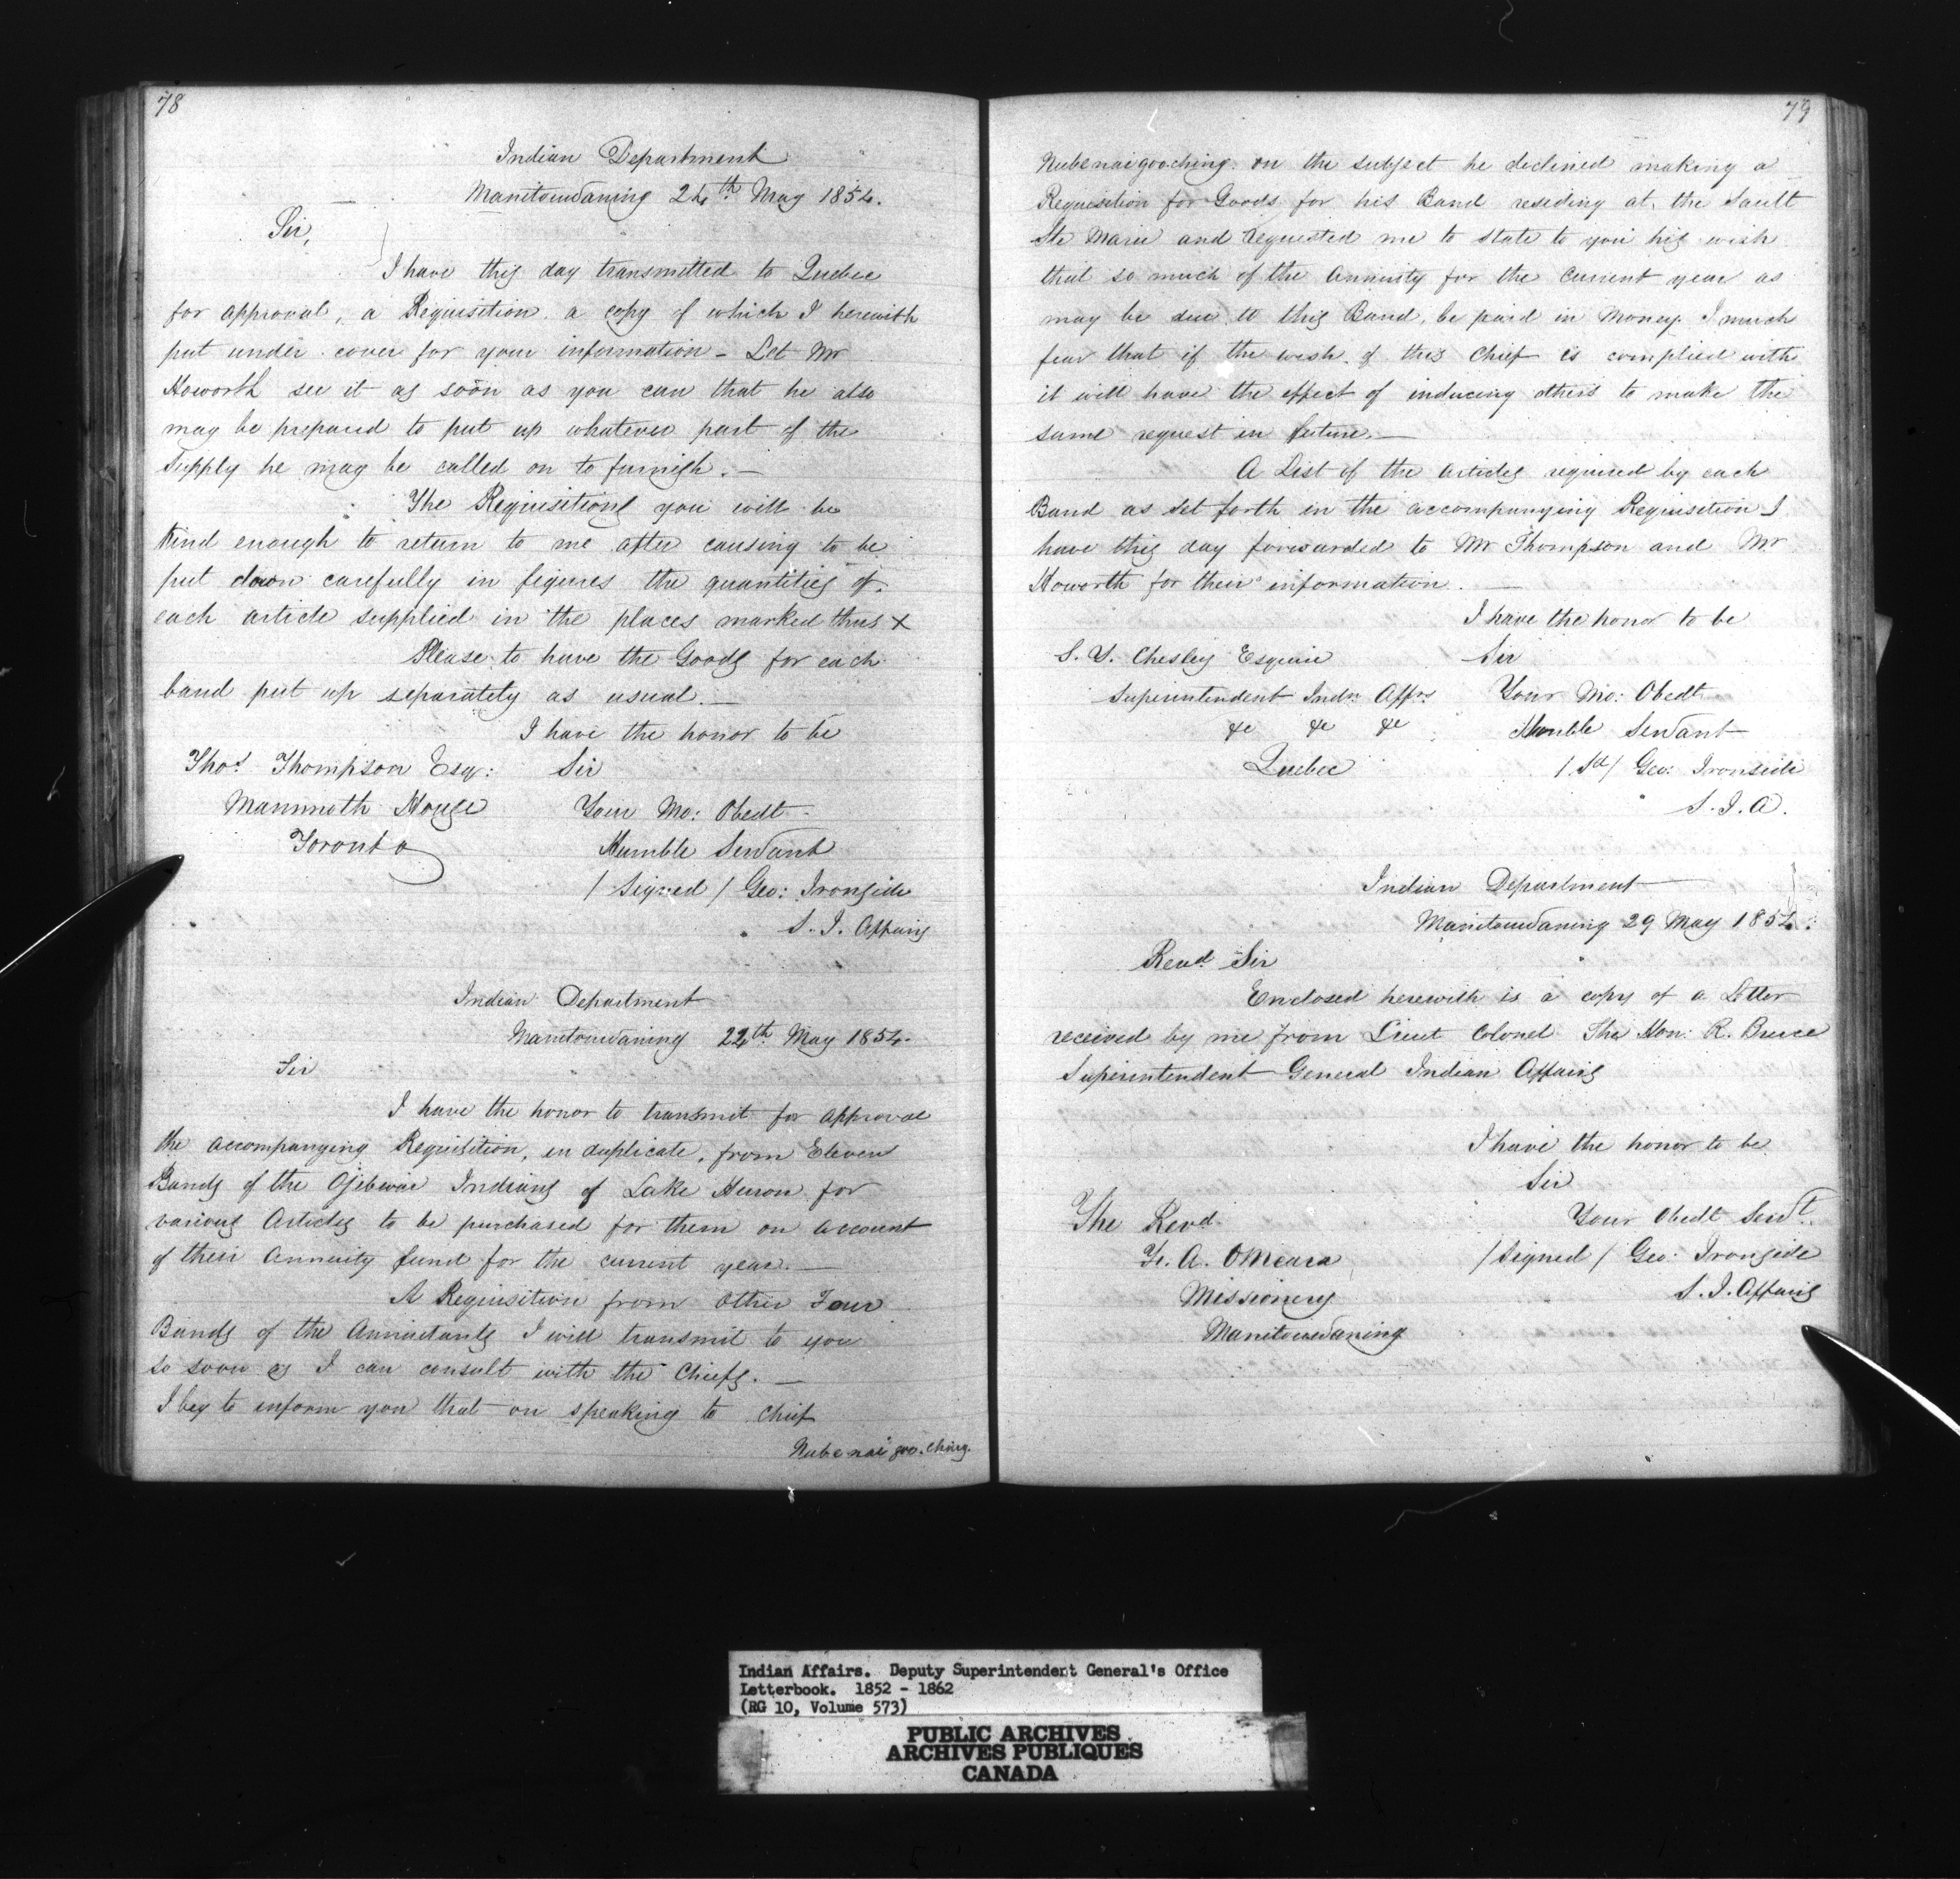 78
Indian Department
Manitouwaning 24th May 1854.
Sir,
I have this day transmitted to Quebec
for approval, a Requisition a copy of which I herewith
put under cover for your information - Let Mr
Howorth see it as soon as you can that he also
may be prepared to put up whatever part of the
Supply he may be called on to furnish. —
The Requisitions you will be
kind enough to return to me after causing to be
put down carefully in figures the quantities of
each article supplied in the places marked thus x
Please to have the Goods for each
band put up separately as usual. —
I have the honor to be
Thos Thompson Esq: Sir
Mammoth House Your Mo: Obedt
Toronto Humble Servant
/ Signed / Geo: Ironside
S. I. Affairs
Indian Department
Manitouwaning 24th May 1854.
Sir
I have the honor to transmit for approval
the accompanying Requisition, in duplicate, from Eleven
Bands of the Ojibwai Indians of Lake Huron for
various Articles to be purchased for them on account
of their Annuity fund for the current year. —
A Requisition from other Four
Bands of the Annuitants I will transmit to you
so soon as I can consult with the Chiefs. —
I beg to inform you that on speaking to Chief
Nubenaigooching.
79
Nubenaigooching on the subject he declined making a
Requisition for Goods for his Band residing at the Sault
Ste Marie and requested me to state to you his wish
that so much of the Annuity for the Current year as
may be due to this Band, be paid in Money. I much
fear that if the wish of this Chief is complied with
it will have the effect of inducing others to make the
same request in future. —
A List of the articles required by each
Band as set forth in the accompanying Requisition I
have this day forwarded to Mr Thompson and Mr
Howorth for their information. —
I have the honor to be
S. Y. Chesley Esquire Sir
Superintendent Indn Affrs Your Mo: Obedt
&c &c &c Humble Servant
Quebec / Sd / Geo: Ironside
S. I. A.
Indian Department
Manitouwaning 29 May 1854.
Revd Sir
Enclosed herewith is a copy of a Letter
received by me from Lieut Colonel The Hon: R. Bruce
Superintendent General Indian Affairs
I have the honor to be
Sir
The Revd Your Obedt Servt
F. A. OMeara / Signed / Geo: Ironside
Missionery S. I. Affairs
Manitouwaning
Indian Affairs. Deputy Superintendent General's Office
Letterbook. 1852 - 1862
(RG 10, Volume 573)
PUBLIC ARCHIVES
ARCHIVES PUBLIQUES
CANADA